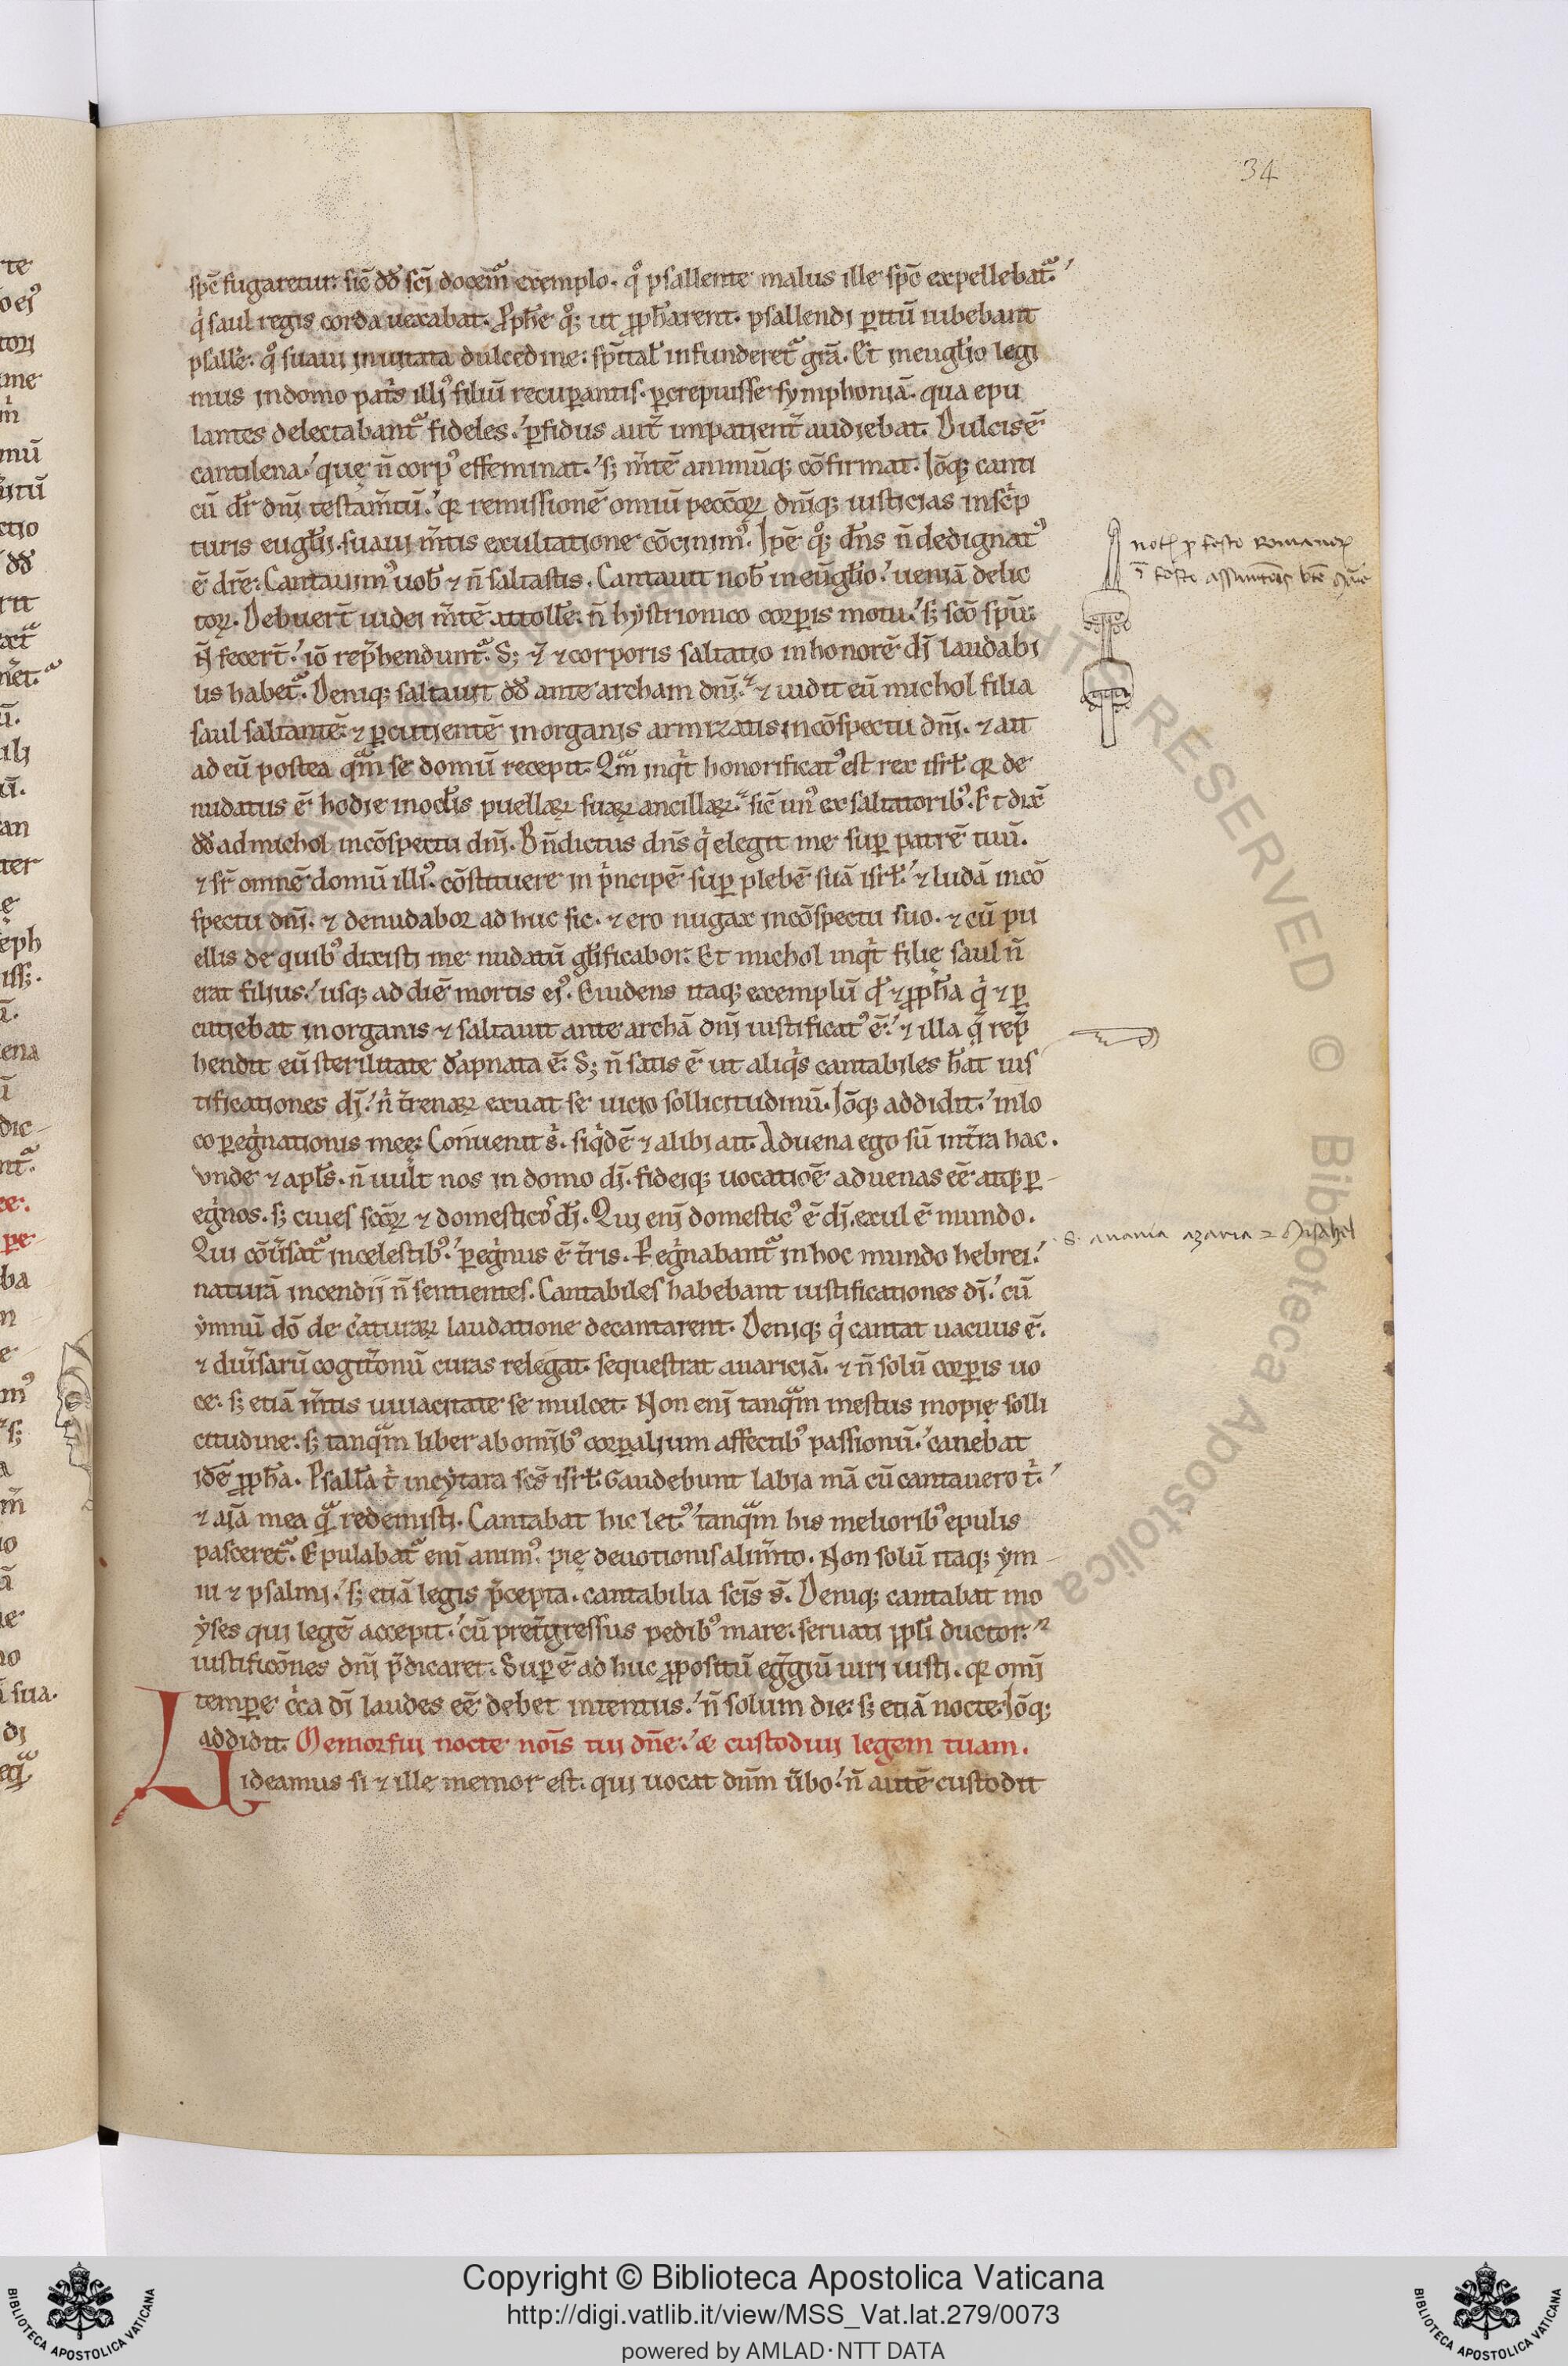 34
spc̄ fugaretur. sic̄ dd̄ sci docem̄ exemplo. qͦ psallente malus ille spc̄ expellebatᷓ.
qͥ saul regis corda uexabat. Ꝓph̄e qͦꝫ ut ꝓph̄arent. psallendi ꝑitū iubebant
psall̄e. qͦ suaui inuitata dulcedine: spitāl infunderetᷓ gr̄a. Et in euḡlio legi
mus in domo patr̄s illiꝰ filiū recuꝑantis. ꝑcrepuisse symphoniā. qua epu
lantes delectabantᷓ fideles. ꝑfidus aut̄ impatient̄ audiebat. Dulcis ē
cantilena. quę n̄ corpꝰ effeminat. sꝫ m̄tē animūqꝫ cōfirmat. Iōqꝫ canti
cū dr̄ dn̄i testam̄tū. qꝛ remissionē omiū peccōꝝ dn̄iqꝫ iusticias in scͥp
turis euḡlii. suaui m̄tis exultatione cōcinimꝰ. Ip̄e qͦꝫ dn̄s n̄ dedignatꝰ
ē dr̄e: Cantauimꝰ uob̄ ⁊ n̄ saltastis. Cantauit nob̄ in eūḡlio. ueniā delic
toꝝ. Debuer̄t iudei m̄tē attoll̄e. n̄ hystrionico corꝑis motu. sꝫ scō spū.
N̄ fecer̄t. iō rep̄hendunt̄ᷓ. Sꝫ ē ⁊ corporis saltatio in honorē dī laudabi
lis habet̄ᷓ. Deniqꝫ saltauit dd̄ ante archam dn̄i. ⁊ uidit eū michol filia
saul saltantē. ⁊ ꝑcutientē in organis armizatis in cōspectu dn̄i. ⁊ ait
ad eū postea qᷓm se domū recepit. Qᷓm inqͥt honorificatꝰ est rex isrl̄ qꝛ de
nudatus ē hodie in ocl̄is puellaꝝ suaꝝ ancillaꝝ. sic̄ unꝰ ex saltatoribꝰ. Et dix̄
dd̄ ad michol in cōspectu dn̄i. Bn̄dictus dn̄s qͥ elegit me suꝑ patrē tuū.
⁊ sr̄ omnē domū illiꝰ. cōstituere in pͥncipē suꝑ plebē suā isrl̄. ⁊ ludā in cō
spectu dn̄i. ⁊ denudabor ad huc sic. ⁊ ero nugax in cōspectu suo. ⁊ cū pu
ellis de quibꝰ dixisti me nudatū gl̄ificabor. Et michol inqͥt filię saul n̄
erat filius. usqꝫ ad diē mortis eiꝰ. Euidens itaqꝫ exemplū qd̄ ⁊ ꝓph̄a qͥ ⁊ ꝑ
cutiebat in organis ⁊ saltauit ante archā dn̄i iustificatꝰ ē. ⁊ illa qᷓ rep̄
hendit eū sterilitate dāpnata ē. Sꝫ n̄ satis ē ut aliqͥs cantabiles h̄at ius
tificationes dī. nͥ t̄renaꝝ exuat se uicio sollicitudinū. Iōqꝫ addidit. in lo
co ꝑegͥnationis mee: Conuenit sͥ. siqͥdē ⁊ alibi ait. Aduena ego sū in t̄ra hac.
vnde ⁊ apl̄s. n̄ uult nos in domo dī. fideiqꝫ uocatiōē aduenas eē atqꝫ ꝑ-
egͥnos. sꝫ ciues scōꝝ ⁊ domesticoͦ dī. Qui enī domesticꝰ ē dī. exul ē mundo.
Qui cōūsatᷓ in celestibꝰ. ꝑegͥnus ē t̄ris. Ꝑegͥnabantᷓ in hoc mundo hebrei.
naturā incendii n̄ sentientes. Cantabiles habebant iustificationes dī. cū
ymnū dō de c̄aturaꝝ laudatione decantarent. Deniqꝫ qͥ cantat uacuus ē.
⁊ diūsarū cogit̄onū curas relegat. sequestrat auariciā. ⁊ n̄ solū corꝑis uo
ce. sꝫ etiā m̄tis uiuacitate se mulcet. Non enī tanqᷓm mestus inopię solli
citudine. sꝫ tanqᷓm liber ab omībꝰ corꝑalium affectibꝰ passionū. canebat
idē ꝓph̄a. Psallā tͥ in cytara scs̄ isrl̄. Gaudebunt labia mā cū cantauero tͥ.
⁊ aīa mea qᷓ redemisti. Cantabat hic letꝰ. tanqᷓm his melioribꝰ epulis
pasceretᷓ. Epulabatᷓ enī animꝰ. pię deuotionis alim̄to. Non solū itaqꝫ ym-
ni ⁊ psalmi. sꝫ etiā legis p̄cepta. cantabilia scīs s̄. Deniqꝫ cantabat mo
yses qui legē accepit. cū pret̄gressus pedibꝰ mare. seruati ppl̄i ductor.
iustificōnes dn̄i p̄dicaret. Suꝑ ē ad huc ꝓpositū egͣgiū uiri iusti. qꝛ omī
tempore cͥca dī laudes eē debet intentus. n̄ solum die. sꝫ etiā nocte. Iōqꝫ
addidit. Memor fui nocte noīs tui dn̄e. & custodiui legem tuam.
Uideamus si ⁊ ille memor est. qui uocat dn̄m ūbo. n̄ autē custodit
notꝭ ꝓ festo Romanoꝝ
ī festo assumtōis bte
s. anania azaria ⁊ Misahel
ALL RIGHTS RESERVED © Biblioteca Apostolica Vaticana
Copyright © Biblioteca Apostolica Vaticana
http://digi.vatlib.it/view/MSS_Vat.lat.279/0073
powered by AMLAD·NTT DATA
BIBLIOTECA APOSTOLICA VATICANA
BIBLIOTECA APOSTOLICA VATICANA